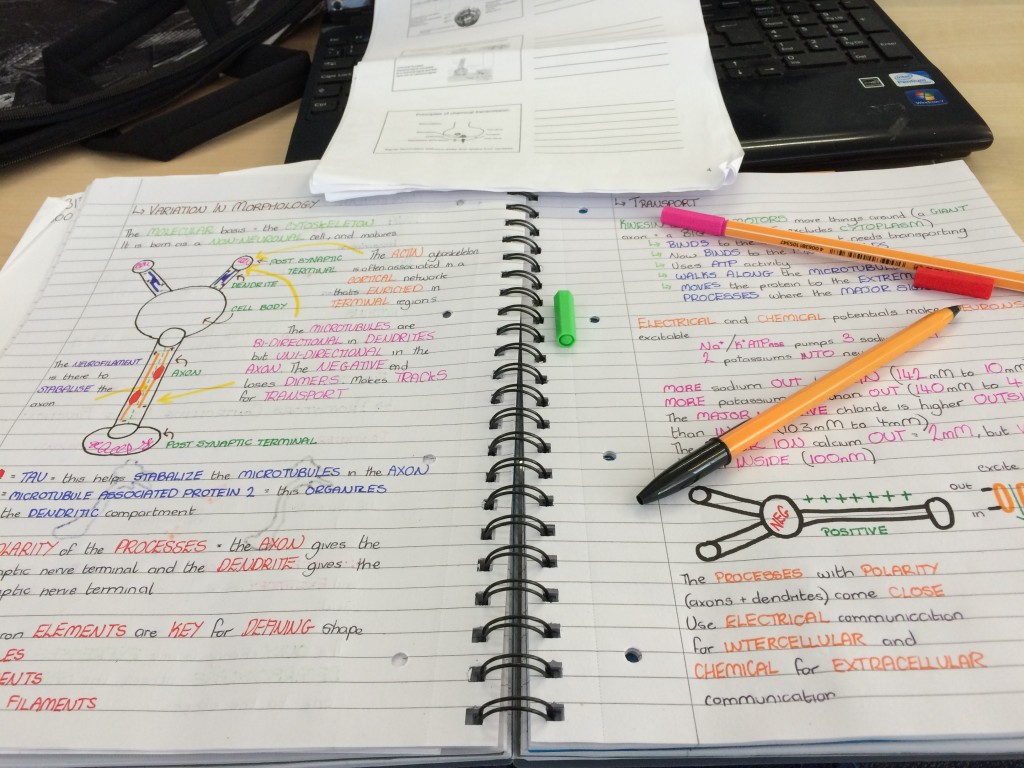 ↳ VARIATION IN MORPHOLOGY
The MOLECULAR basis = the CYTOSKELETON
It is born as a NON-NEURONAL cell, and matures
POST SYNAPTIC
TERMINAL
DENDRITE
CELL BODY
The ACTIN cytoskeleton
is often associated in a
CORTICAL network
thats ENRICHED in
TERMINAL regions
The MICROTUBULES are
BI-DIRECTIONAL in DENDRITES
but UNI-DIRECTIONAL in the
AXON. The NEGATIVE end
loses DIMERS. Makes TRACKS
for TRANSPORT
The NEUROFILAMENT
is there to
STABALISE the
axon
AXON
POST SYNAPTIC TERMINAL
= TAU = this helps STABALIZE the MICROTUBULES in the AXON
= MICROTUBULE ASSOCIATED PROTEIN 2 = this ORGANIZES
the DENDRITIC compartment
OLARITY of the PROCESSES = the AXON gives the
aptic nerve terminal and the DENDRITE gives the
aptic nerve terminal
ELEMENTS are KEY for DEFINING shape
LES
ENTS
FILAMENTS
↳ TRANSPORT
KINESIN MOTORS move things around (a GIANT
axon = a BIG excludes CYTOPLASM)
↳ BINDS to the needs transporting
↳ Now BINDS to the
↳ Uses ATP activity
↳ WALKS ALONG the MICROTUBUL
↳ MOVES the protein to the EXTREM
PROCESSES where the MAJOR SI
ELECTRICAL and CHEMICAL potentials make EURONS
excitable
Na+/K+ ATPase pumps 3 sod
2 potassiums INTO
MORE sodium OUT IN (142mM to 10mM
MORE potassium than OUT (140mM to 4
The MAJOR IVE chloride is higher OUTSI
than IN (103mM to 4mM)
ION calcium OUT = 2mM, but
INSIDE (100nM)
NEG
+ + + + + + +
POSITIVE
out
in
excite
The PROCESSES with POLARITY
(axons + dendrites) come CLOSE
Use ELECTRICAL communication
for INTERCELLULAR and
CHEMICAL for EXTRACELLULAR
communication